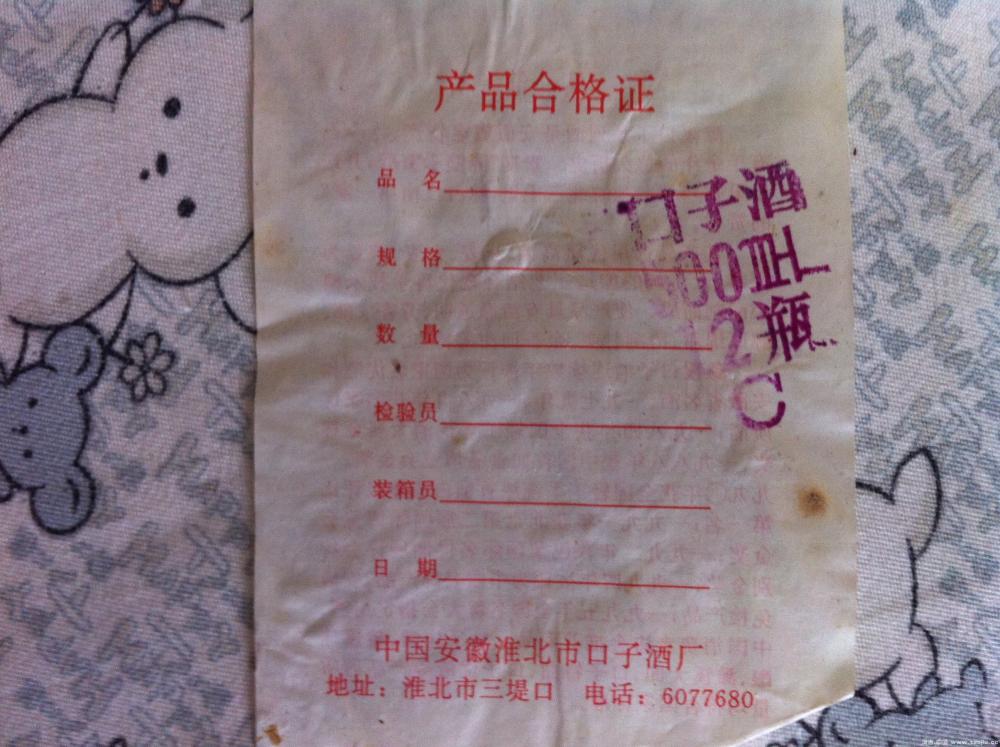 产品合格证
品 名
口子酒
规 格
500
数 量
12瓶
C
检验员
装箱员
日 期
中国安徽淮北市口子酒厂
地址：淮北市三堤口 电话：6077680